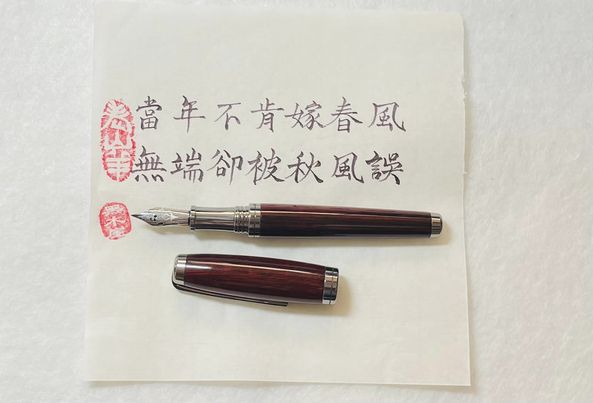 當年不肯嫁春風
無端卻被秋風誤